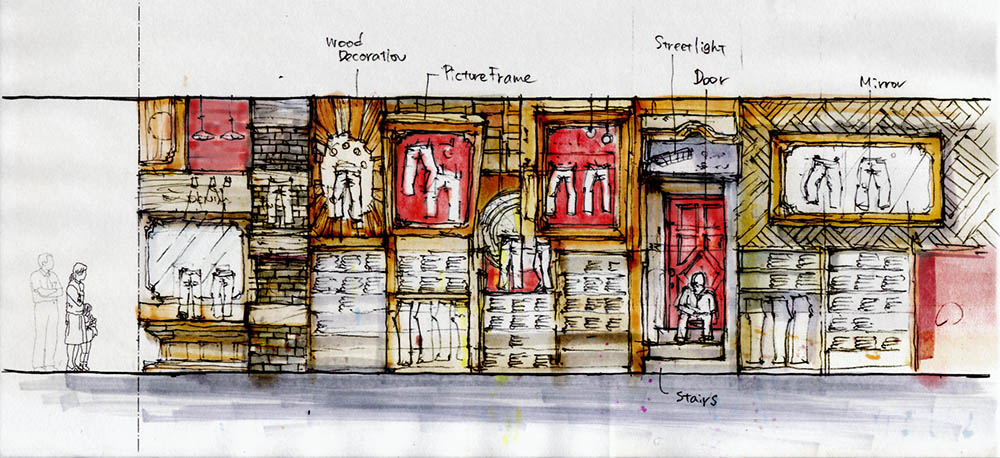 Wood
Decoration
PictureFrame
Streetlight
Door
Mirror
Stairs